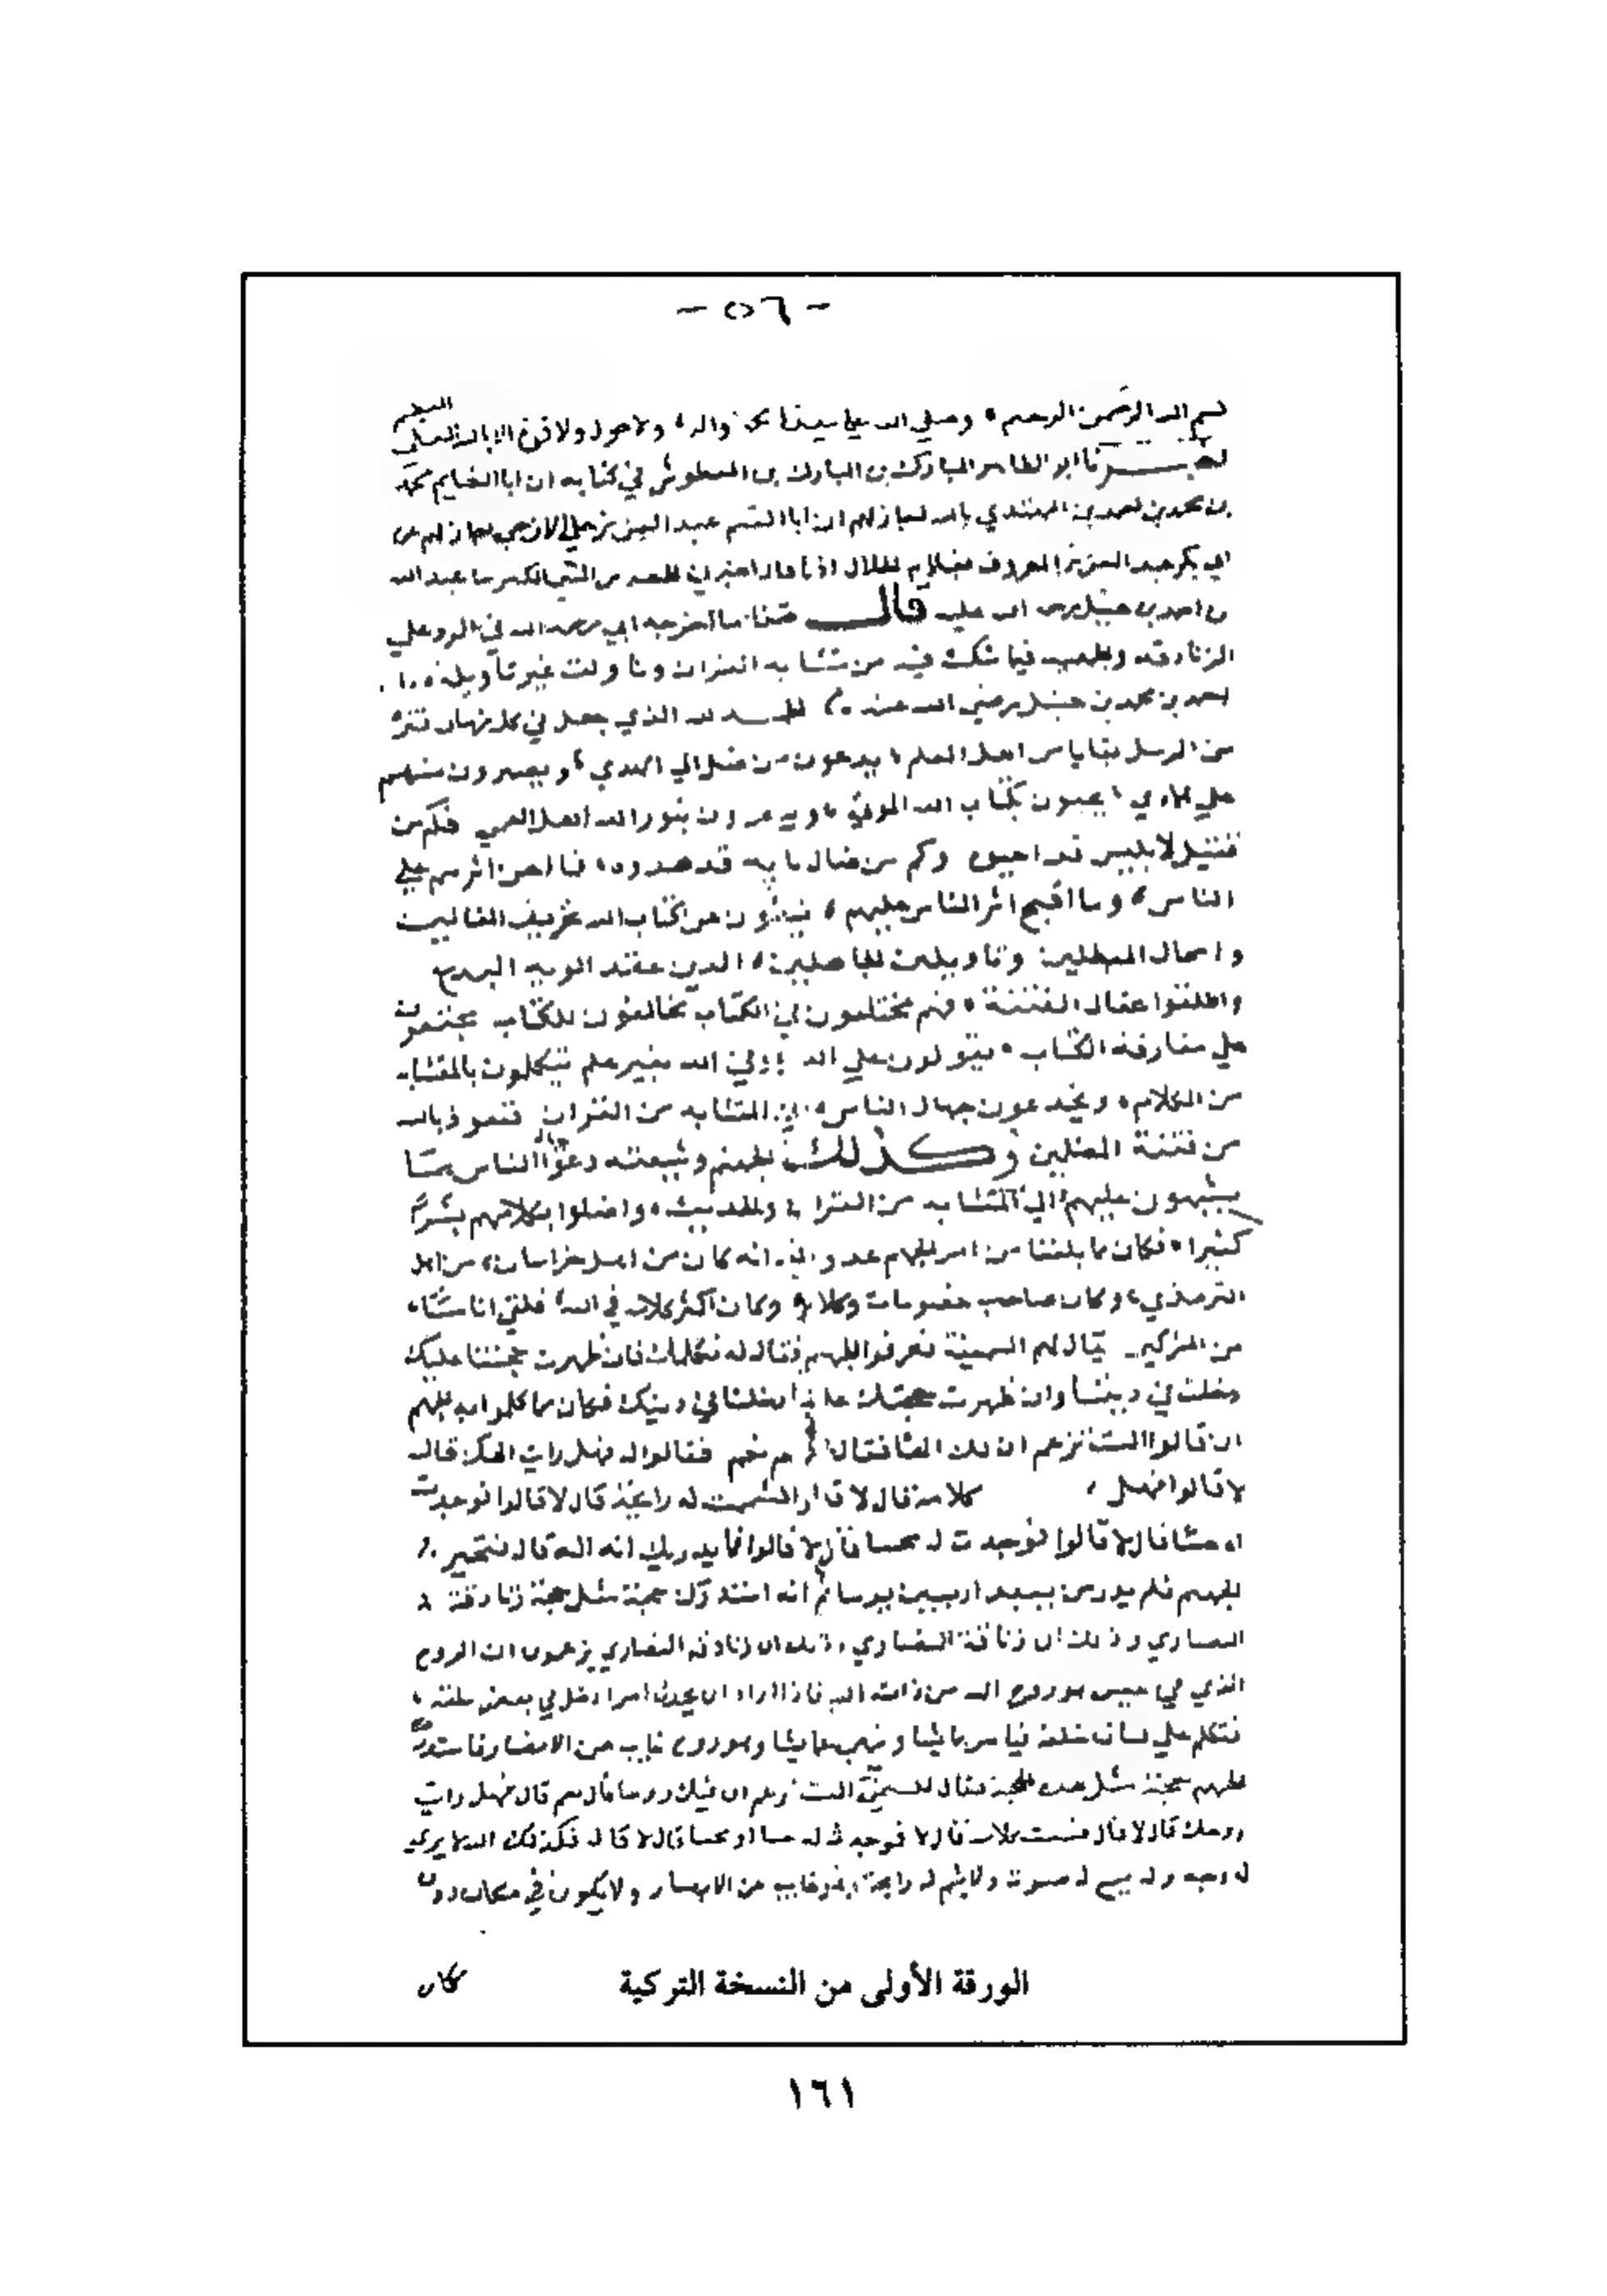 - ٥٦ -
بسم الله الرحمن الرحيم وصلى الله على سيدنا محمد واله ولا حول ولا قوة الا بالله العلي العظيم
ابو الطاهر المبارك بن المبارك بن المعطوش في كتابه ان ابا الغنايم محمد
بن محمد بن احمد بن المهتدي بالله اجاز لهم ان ابا القسم عبد العزيز بن علي الازجي اجاز لهم عن
ابي بكر عبد العزيز المعروف بغلام الخلال اذنا قال اخبرني الخضر بن المثنى الكندي عبد الله
بن احمد بن حنبل قال هذا ما اخرجه ابي رحمه الله في الرد على
الزنادقة والجهمية فيما شكت فيه من متشابه القران وتاولت غير تاويله
احمد بن محمد بن حنبل رضي الله عنه الحمد لله الذي جعل في كل زمان فترة
من الرسل بقايا من اهل العلم يدعون من ضل الي الهدي ويصبرون منهم
علي الاذي يحيون بكتاب الله الموتي ويبصرون بنور الله اهل العمي فكم من
قتيل لابليس قد احيوه وكم من ضال تايه قد هدوه فما احسن اثرهم علي
الناس وما اقبح اثر الناس عليهم ينفون عن كتاب الله تحريف الغالين
وانتحال المبطلين وتاويل الجاهلين الذين عقدوا الوية البدع
واطلقوا عقال الفتنة فهم مختلفون في الكتاب مخالفون للكتاب مجتمعون
علي مفارقة الكتاب يقولون علي الله وفي الله بغير علم يتكلمون بالمتشابه
من الكلام ويخدعون جهال الناس المتشابه من القران فنعوذ بالله
من فتنة المضلين وكذلك الجهم وشيعته دعوا الناس
يشبهون عليهم الي المتشابه من القران والحديث واضلوا بكلامهم بشرا
كثيرا فكان مما بلغنا من امر الجهم عدو الله انه كان من اهل خراسان من اهل
الترمذي وكان صاحب خصومات وكلام وكان اكثر كلامه في الله فلقي اناسا
من المشركين يقال لهم السمنية فعرفوا الجهم فقالوا له نكلمك فان ظهرت حجتنا عليك
دخلت في ديننا وان ظهرت حجتك علينا دخلنا في دينك فكان مما كلموا به الجهم
ان قالوا الست تزعم ان لك الها فقال الجهم نعم فقالوا له فهل رايت الهك قال
لا قالوا فهل كلامه قال لا قالوا اشممت له رايحة قال لا قالوا فوجدت
له حسا قال لا قالوا فوجدت له مجسا قال لا قالوا فما يدريك انه اله قال فتحير
الجهم فلم يدر من يعبد اربعين يوما ثم انه استدرك حجة مثل حجة زنادقة
النصاري وذلك ان زنادقة النصاري يزعمون ان الروح
الذي في عيسى هو روح الله من ذات الله فاذا اراد ان يحدث امرا دخل في بعض خلقه
فتكلم علي لسان خلقه فيامر بما يشا وينهى عما يشا وهو روح غايب عن الابصار فاستدرك
الجهم حجة مثل هذه الحجة فقال للسمني الست تزعم ان فيك روحا قال نعم قال فهل رايت
روحك قال لا قال فسمعت كلامه قال لا فوجدت له حسا او مجسا قال لا قال فكذلك الله لا يرى
له وجه ولا يسمع له صوت ولا يشم له رايحة وهو غايب عن الابصار ولا يكون في مكان دون
مكان
الورقة الأولى من النسخة التركية
١٦١